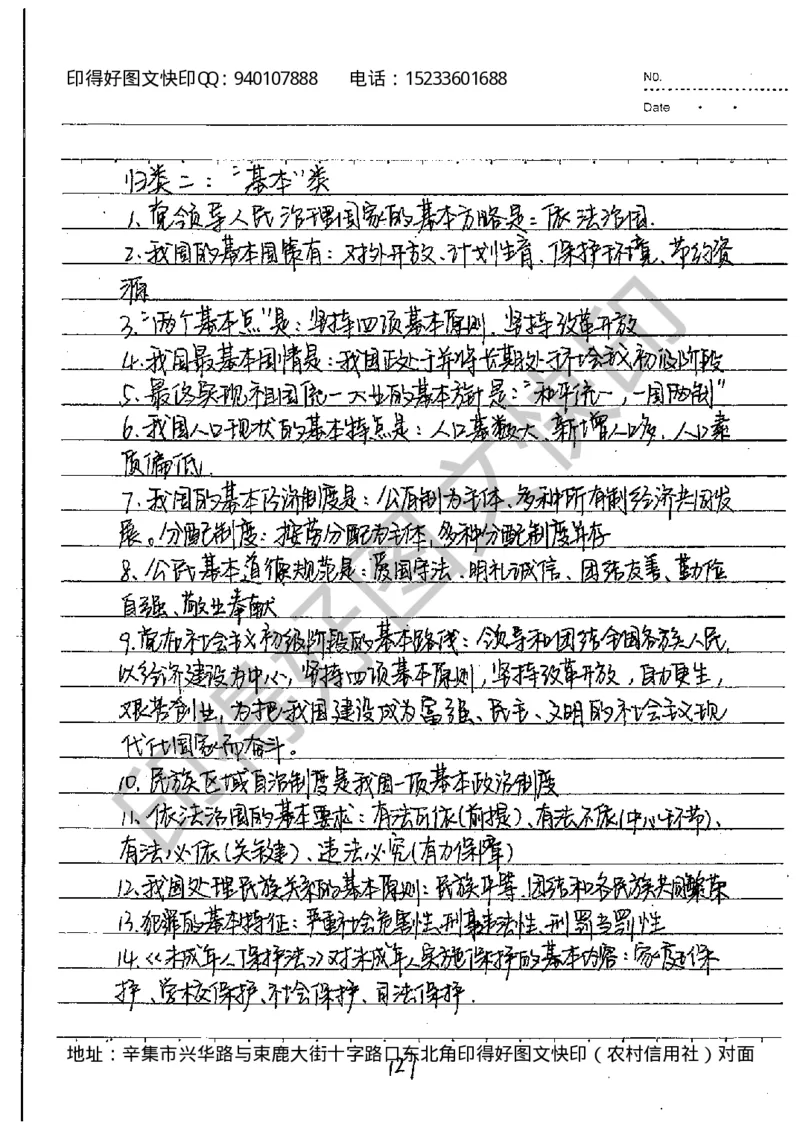 印得好图文快印QQ：940107888 电话：15233601688
No.
Date
归类二：“基本”类
1、党领导人民治理国家的基本方略是：依法治国.
2、我国的基本国策有：对外开放、计划生育、保护环境、节约资
源
3、“两个基本点”是：坚持四项基本原则、坚持改革开放
4、我国最基本国情是：我国正处于并将长期处于社会主义初级阶段
5、最终实现祖国统一大业的基本方针是：“和平统一，一国两制”
6、我国人口现状的基本特点是：人口基数大、新增人口多、人口素
质偏低.
7、我国的基本经济制度是：公有制为主体、多种所有制经济共同发
展。分配制度：按劳分配为主体，多种分配制度并存
8、公民基本道德规范是：爱国守法、明礼诚信、团结友善、勤俭
自强、敬业奉献
9、党在社会主义初级阶段的基本路线：领导和团结全国各族人民，
以经济建设为中心，坚持四项基本原则，坚持改革开放，自力更生，
艰苦创业，为把我国建设成为富强、民主、文明的社会主义现
代化国家而奋斗。
10、民族区域自治制度是我国一项基本政治制度
11、依法治国的基本要求：有法可依(前提)、有法不依(中心环节)、
有法必依(关键)、违法必究(有力保障)
12、我国处理民族关系的基本原则：民族平等、团结和各民族共同繁荣
13、犯罪的基本特征：严重社会危害性、刑事违法性、刑罚当罚性
14、《未成年人保护法》对未成年人实施保护的基本内容：家庭保
护、学校保护、社会保护、司法保护.
地址：辛集市兴华路与束鹿大街十字路口东北角印得好图文快印（农村信用社）对面
127
印得好图文快印